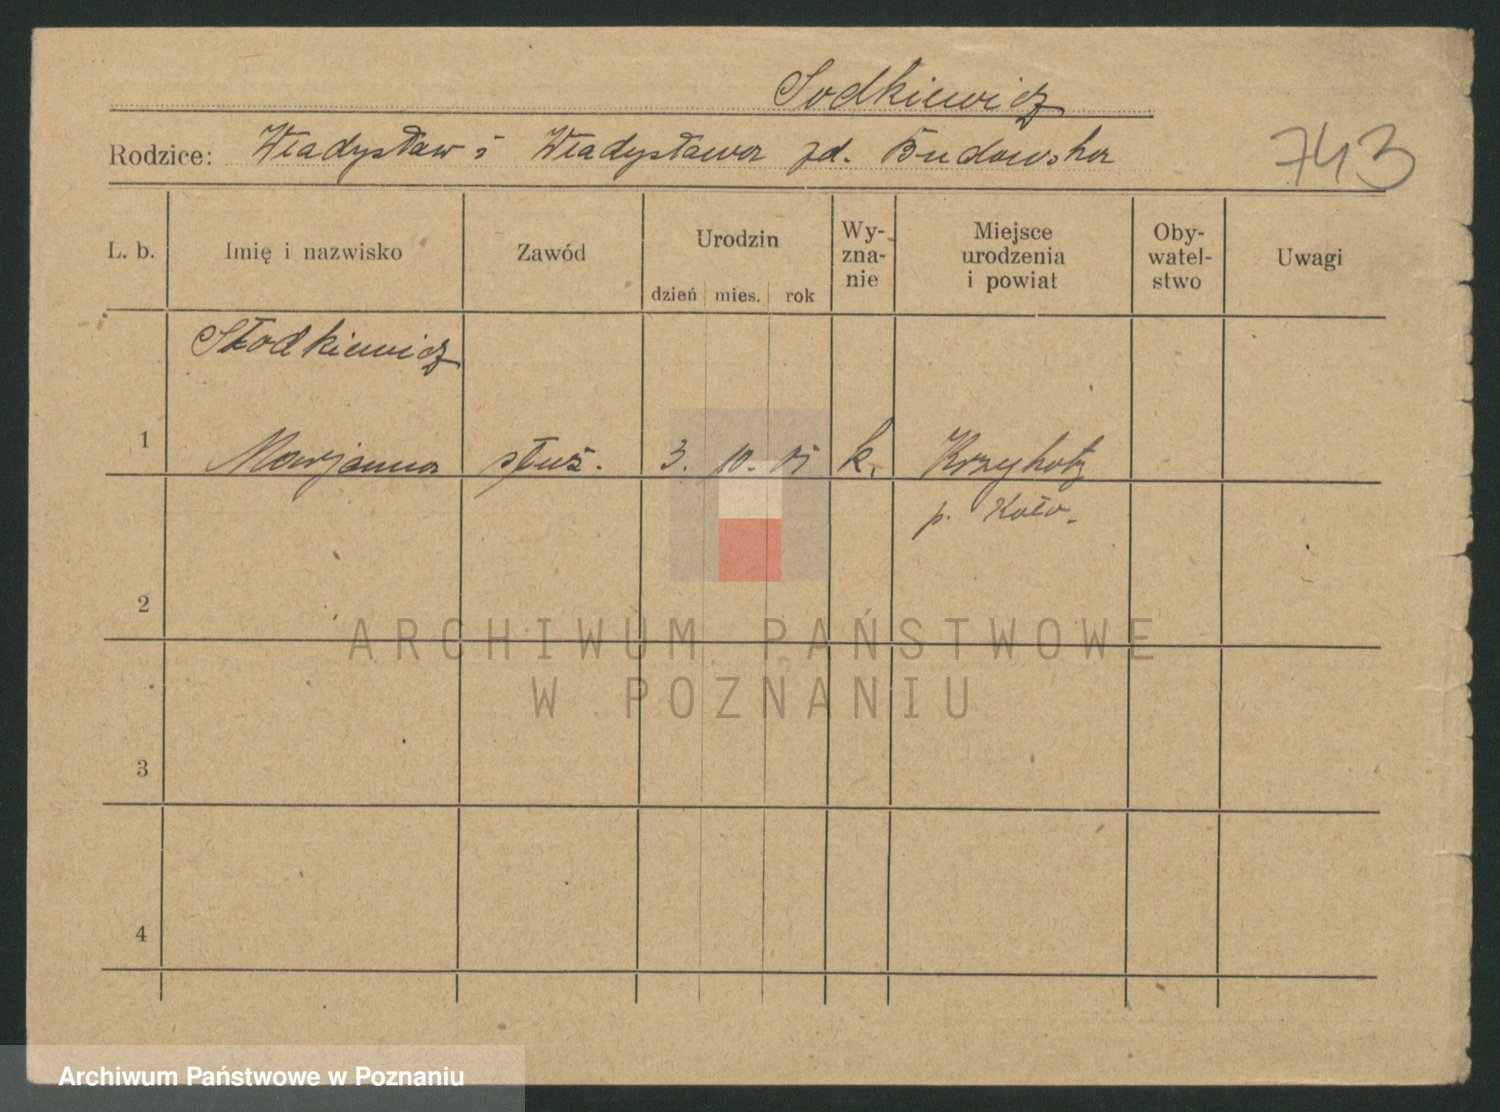 Sodkiewicz
Rodzice: Władysław i Władysława zd. Budowska
743
L. b. Imię i nazwisko Zawód Urodzin dzień mies. rok Wy-zna-nie Miejsce urodzenia i powiat Oby-watel-stwo Uwagi
Słodkiewicz
1 Marjanna służ. 3. 10. 05 k.
p. Koło.
2
ARCHIWUM PAŃSTWOWE
W POZNANIU
3
4
Archiwum Państwowe w Poznaniu